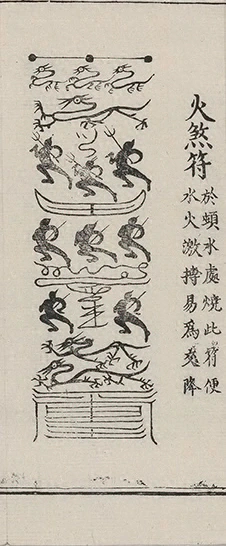 火煞符
於水處燒此符便
水火激搏易為降